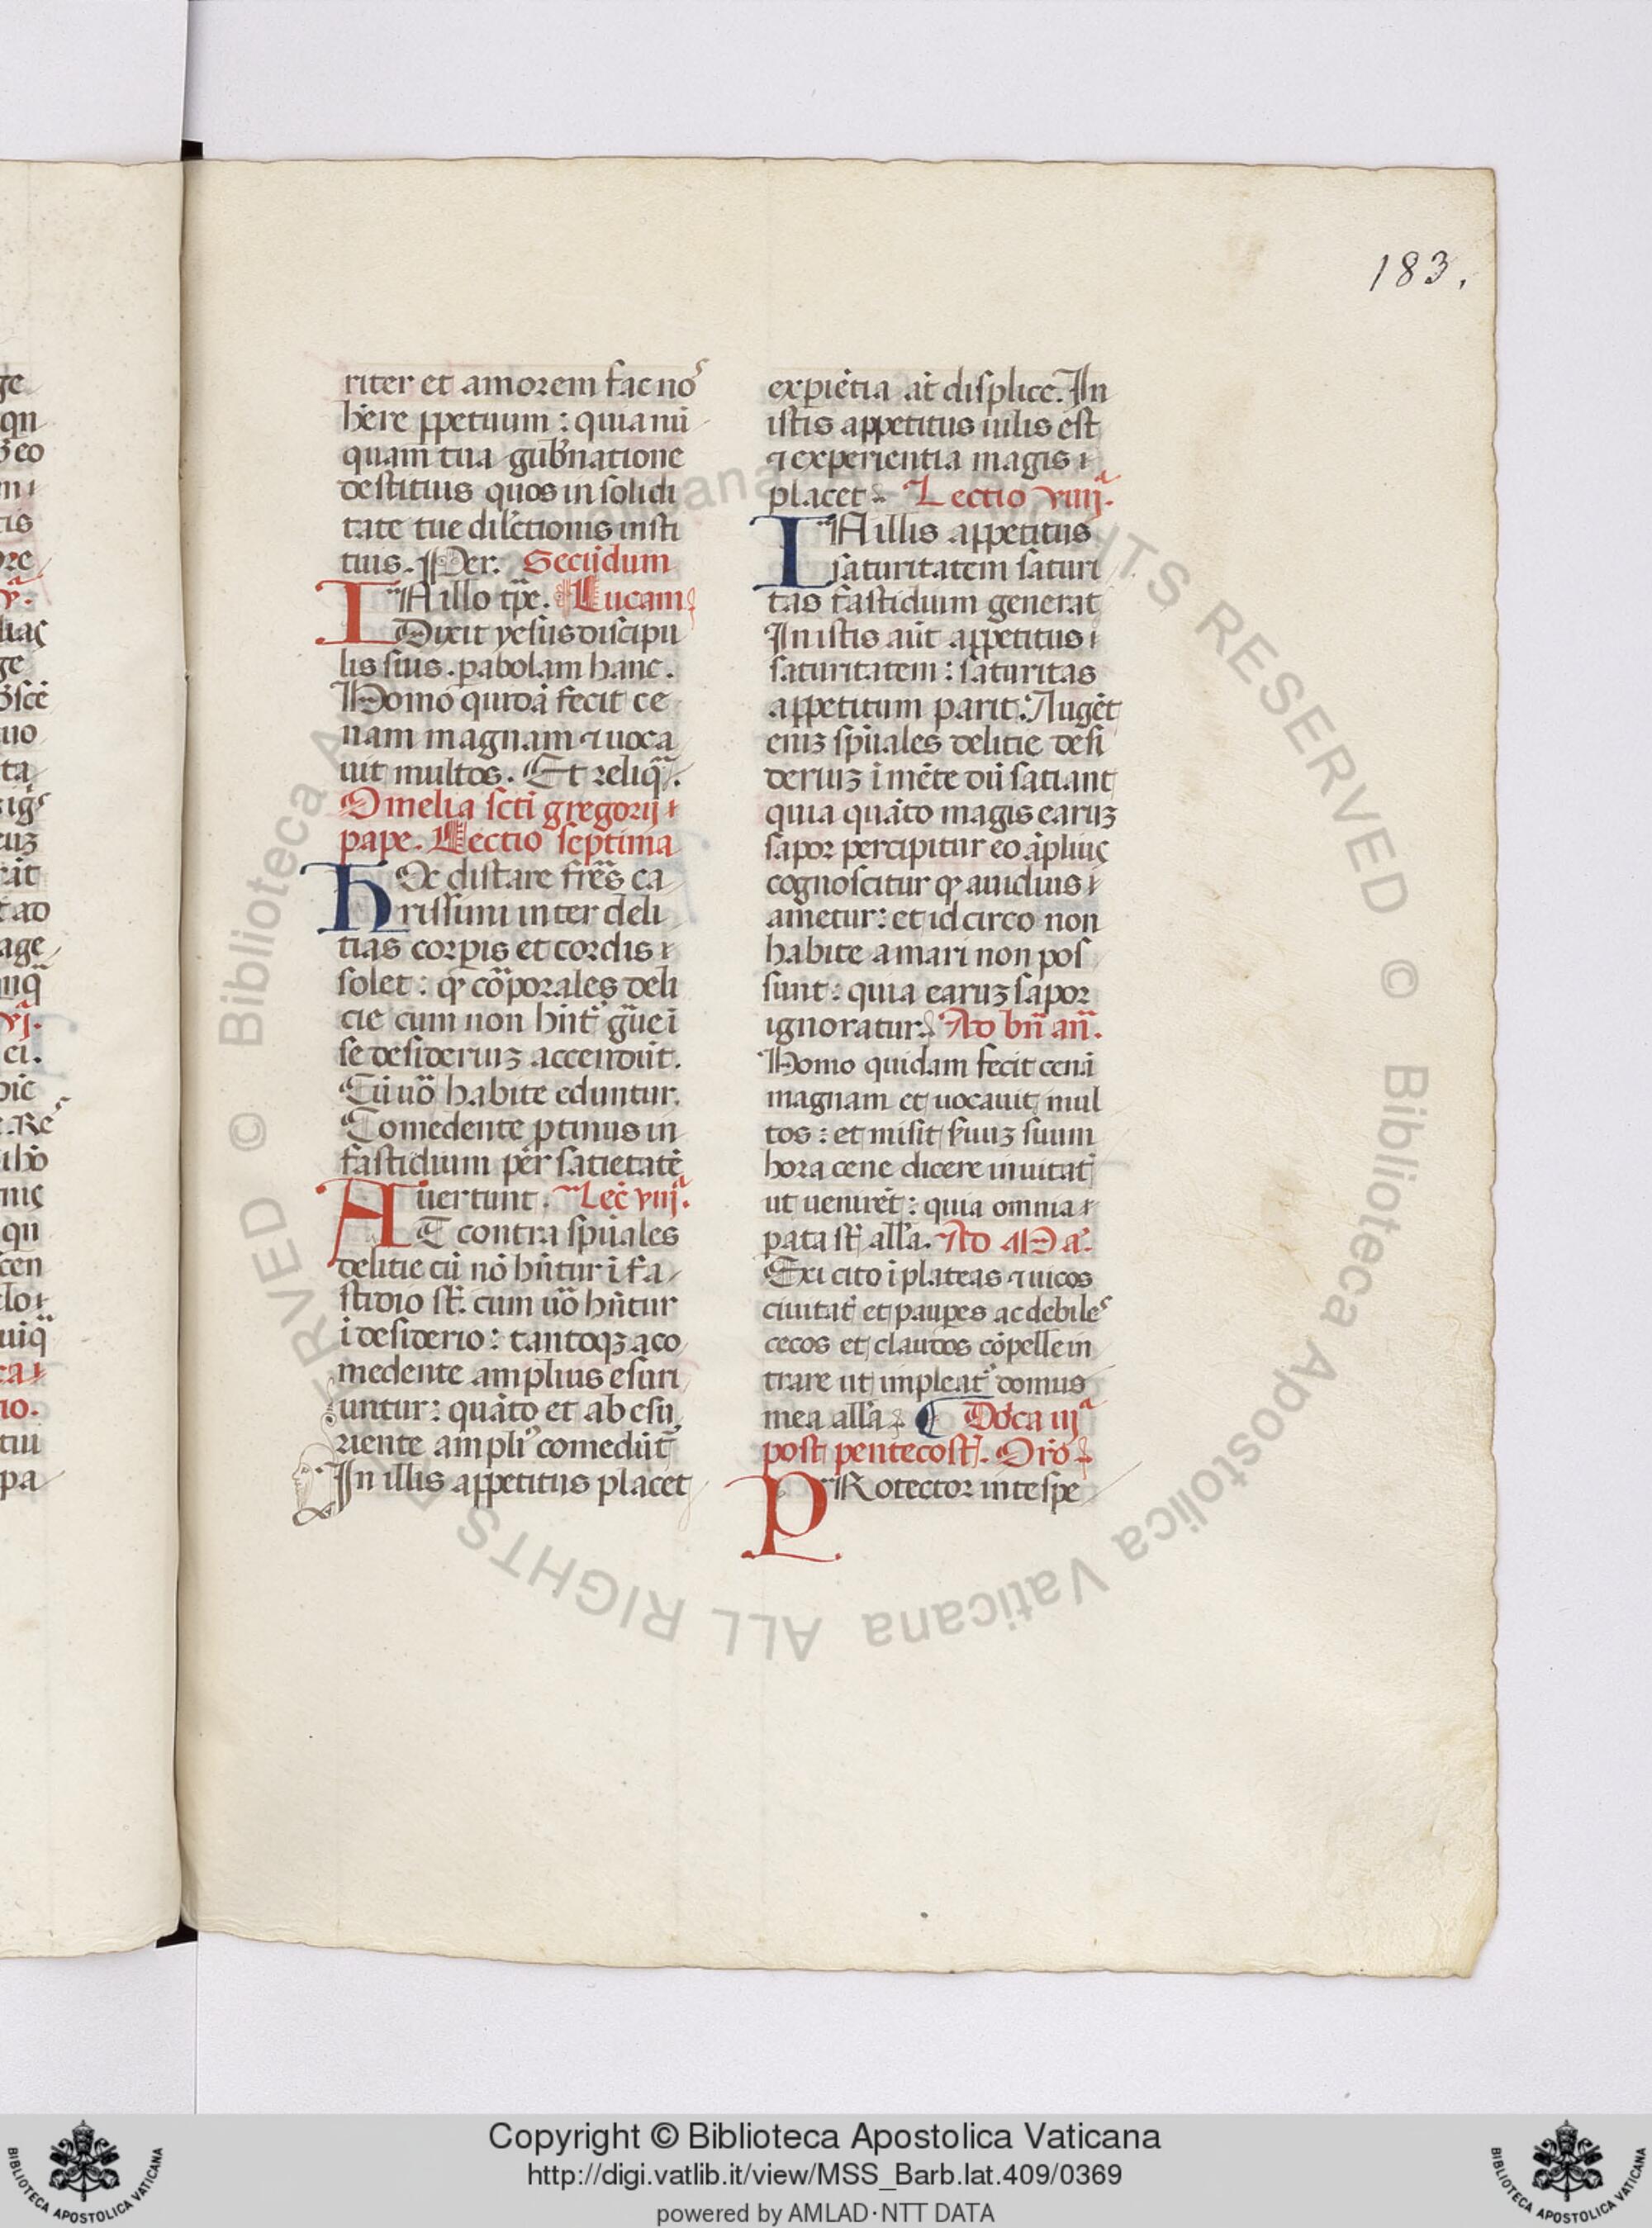 183.
riter et amorem fac nos
hēre ꝑpetuum : quia nū
quam tua gub̄natione
destituis quos in solidi
tate tue dil̄ctionis insti
tuis. Per. Secūdum
IN illo tp̄e. Lucam
Dixit yesus discipu
lis suis. pabolam hanc.
Homo quidā fecit ce
nam magnam ⁊ uoca
uit multos. Et reliq̄.
Omelia scti gregorij
pape. Lectio septima
HOc distare fr̄es ca
rissimi inter deli
tias corꝑis et cordis
solet : ꝙ corporales deli
cie cum non hn̄t̄ gͣue ī
se desideriuꝫ accendūt.
Cū uō habite eduntur.
Comedente ꝓtinus in
fastidium per satietatē
uertunt. Lec̄ viijᵃ.
AT contra spūales
delitie cū nō hn̄tur ī fa
stidio st̄. cum uō hn̄tur
ī desiderio : tantoqꝫ a co
medente amplius esuri
untur : quāto et ab esu
riente ampliꝰ comedūt̄
In illis appetitus placet
experiētia āt displicꝫ. In
istis appetitus uilis est
⁊ experientia magis
placet Lectio viiijᵃ.
IN illis appetitus
saturitatem saturi
tas fastidium generat
In istis aūt appetitus
saturitatem : saturitas
appetitum parit. Augēt
eniꝫ spūales delitie desi
deriuꝫ ī mēte dū satiant
quia quāto magis earuꝫ
sapor percipitur eo āplius
cognoscitur ꝙ auidius
ametur : et idcirco non
habite amari non pos
sunt : quia earuꝫ sapor
ignoratur. Ad bn̄ an̄.
Homo quidam fecit cenā
magnam et uocauit mul
tos : et misit ẜuuꝫ suum
hora cene dicere inuitat̄
ut uenirēt : quia omnia
pata st̄ all'a. Ad Mᵃ.
Exi cito ī plateas ⁊ uicos
ciuitat̄ et pauꝑes ac debiles
cecos et claudos cōpelle in
trare ut impleat̄ domus
mea all'a. Doͥca iijᵃ
post pentecost̄. Orō
PRotector in te spe
Copyright © Biblioteca Apostolica Vaticana
http://digi.vatlib.it/view/MSS_Barb.lat.409/0369
powered by AMLAD·NTT DATA